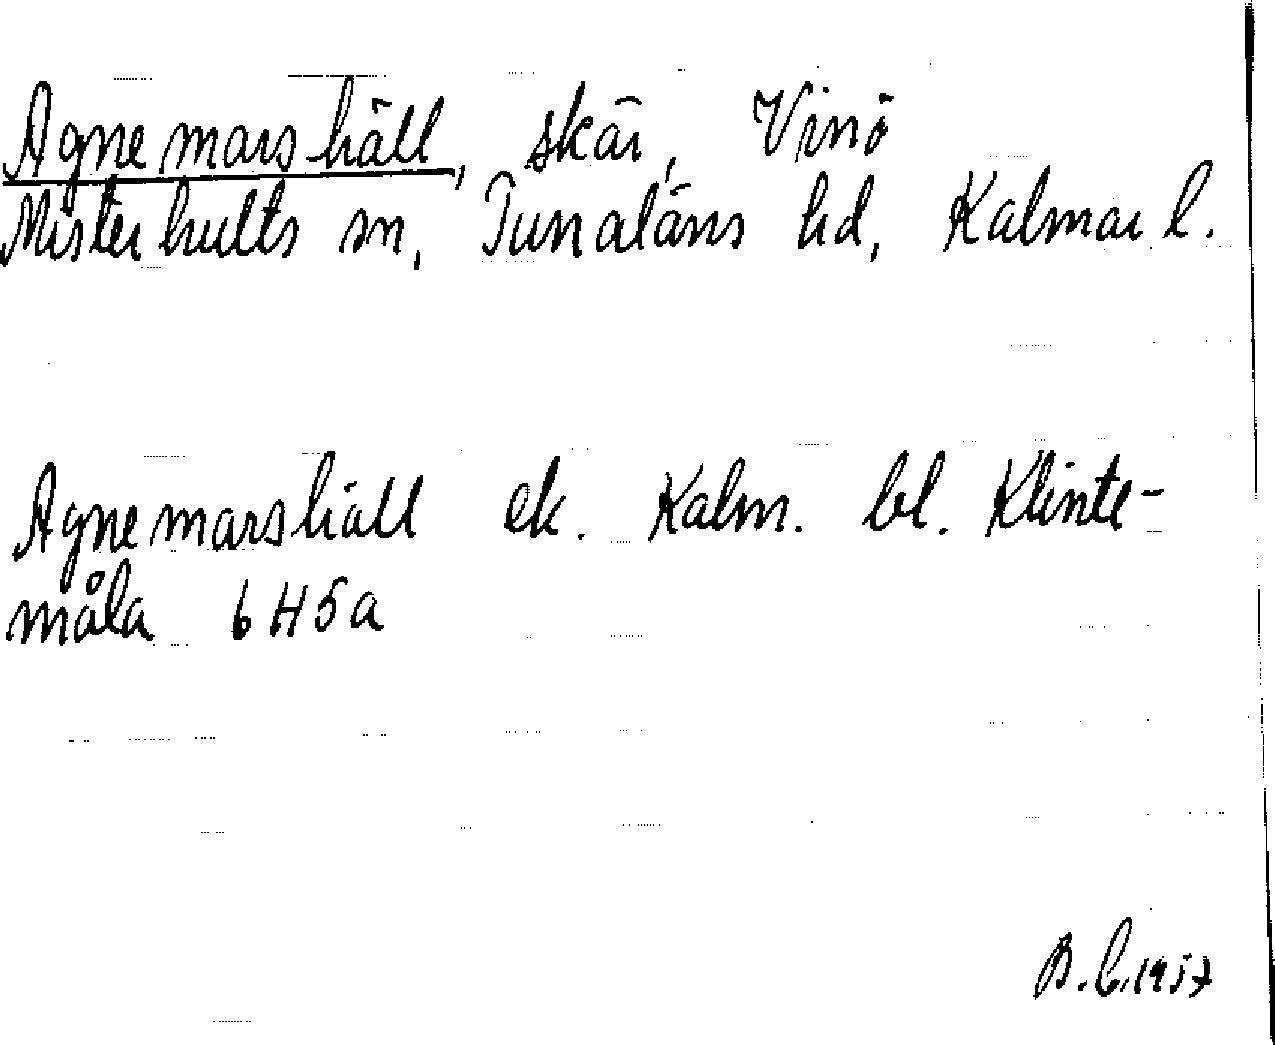 Agnemarshäll, skär, Vinö
Misterhults sn, Tunaläns hd, Kalmar l.
Agnemarshäll ek. Kalm. bl. Klinte-
måla 6H5a
B.C. 1957